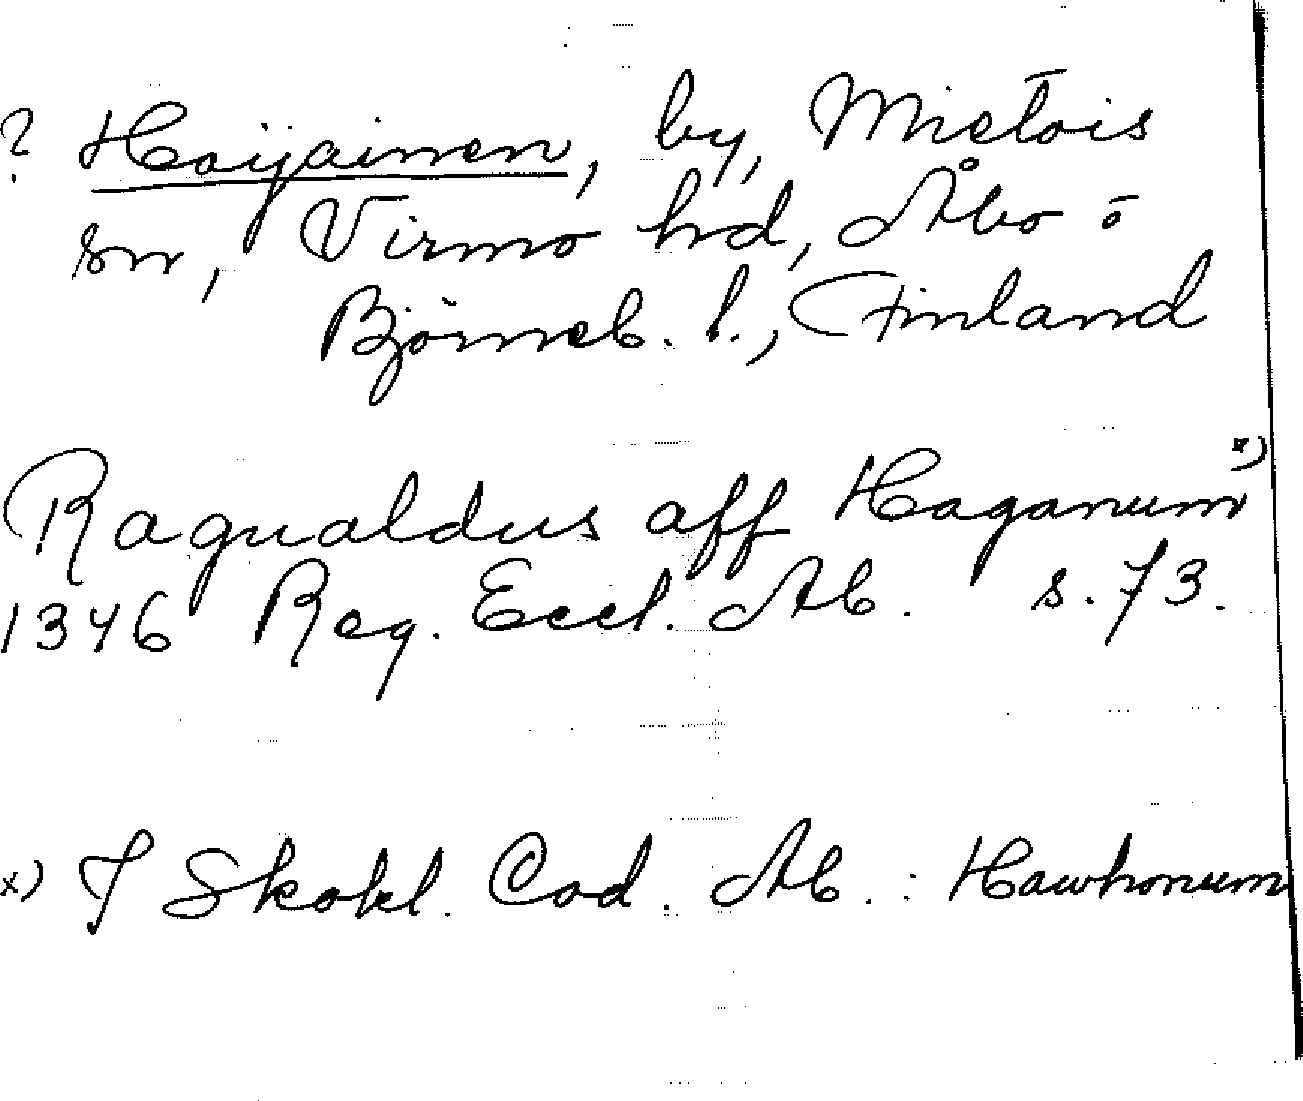 ? Haijainen, by, Mietois
sn, Virmo hd, Åbo o
Björneb. l., Finland
Ragualdus aff Haganum x)
1346 Reg. Eccl. Ab. s. 73.
x) I Skokl. Cod. Ab. : Hawhonum